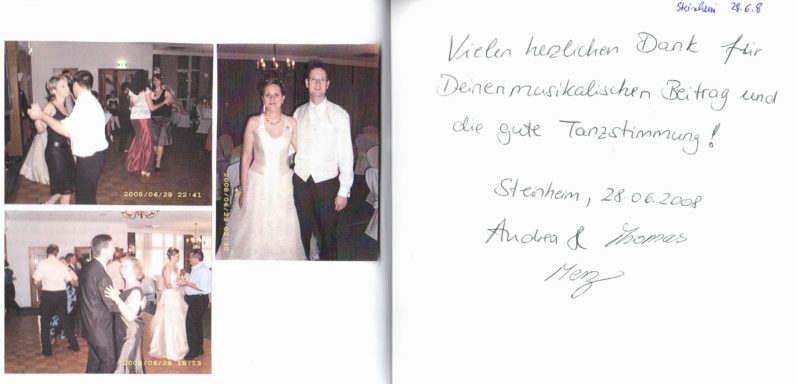 2008/06/28 22:41
2008/06/28 19:13
Steinheim 28.6.8
Vielen herzlichen Dank für
Deinen musikalischen Beitrag und
die gute Tanzstimmung!
Steinheim, 28.06.2008
Andrea & Thomas
Merz